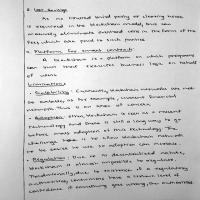 5. Cost Savings
As no trusted third party or clearing house
is required in the blockchain model, this can
massively eliminate overhead costs in the form of the
fees which are paid to such parties
6. Platform for smart contracts
A blockchain is a platform on which programs
can run that execute business logic on behalf
of users.
Limitations
Scalability: Currently, blockchain networks are not
as scalable as, for example, current financial
networks. This is an area of concern
Adoption: Often, blockchain is seen as a nascent
technology and there is still a long way to go
before mass adoption of this technology. The
challenge here is to allow blockchain networks
to be easier to use so adoption can increase.
Regulation: Due to its decentralized nature,
blockchain is almost impossible to regulate.
Traditionally, due to existence of a regulatory
authority, consumers have a certain level of
confidence if something goes wrong, the authorities